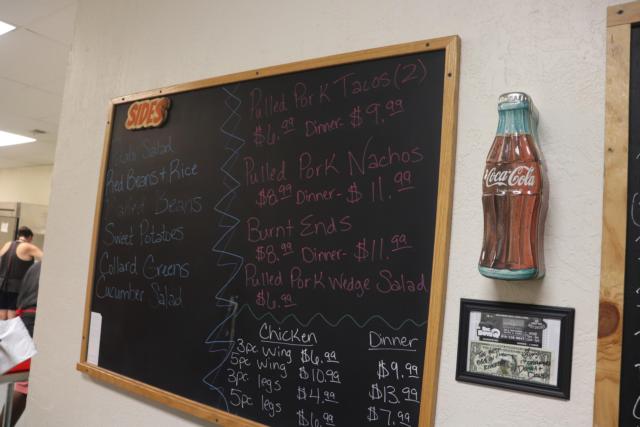 SIDES
Salad
Red Beans + Rice
Baked Beans
Sweet Potatoes
Collard Greens
Cucumber Salad
Pulled Pork Tacos (2)
$6.99 Dinner- $9.99
Pulled Pork Nachos
$8.99 Dinner- $11.99
Burnt Ends
$8.99 Dinner- $11.99
Pulled Pork Wedge Salad
$6.99
Chicken Dinner
3pc wing $6.99 $9.99
5pc wing $10.99 $13.99
3pc legs $4.99 $7.99
5pc legs $6.99
Coca-Cola